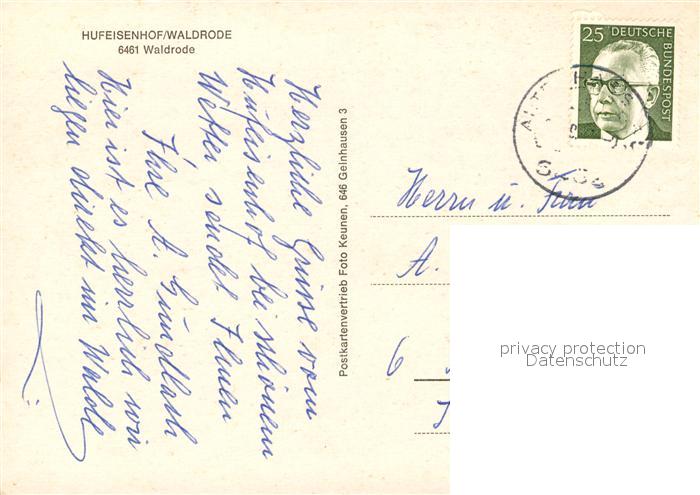 HUFEISENHOF/WALDRODE
6461 Waldrode
Herzliche Grüsse vom
Hufeisenhof bei schönem
Wetter sendet Ihnen
Ihre A. Gundlach
Hier ist es herrlich wir
liegen direkt im Walde
Postkartenvertrieb Foto Keunen, 646 Gelnhausen 3
25 DEUTSCHE
BUNDESPOST
6456
Herrn u. Frau
A.
6
privacy protection
Datenschutz